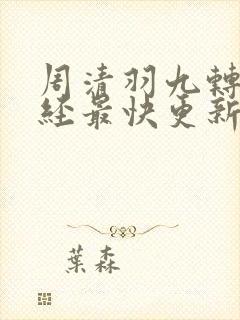 周清羽九轉
丝最快更新
葉森